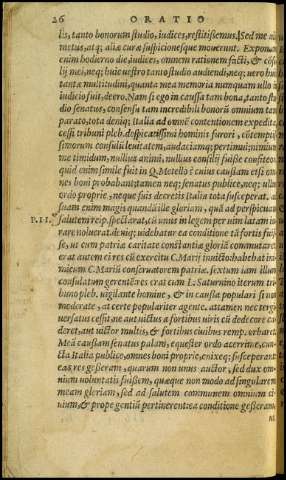 26 ORATIO
lis, tanto bonorum studio, iudices, restitissemus. Sed me ni
metus, atq; aliæ curæ suspicionesque mouerunt. Exponam
enim hodierno die, iudices, omnem rationem facti, & cōsi
lij mei, neq; huic uestro tanto studio audiendi, neq; uero huic
tantæ multitudini, quanta mea memoria numquam ullo in
iudicio fuit, deero. Nam si ego in caussa tam bona, tanto stu
dio senatus, consensu tam incredibili bonorū omnium tam
parato, tota deniq; Italia ad omnē contentionem expedita,
cessi tribuni pleb. despicatissimi hominis furori, cōtemptis
simorum consulū leuitatem, audaciamq; pertimui; nimium
me timidum, nullius animi, nullius consilij fuisse confiteor.
quid enim simile fuit in Q. Metello? cuius caussam etsi om
nes boni probabant; tamen neq; senatus publice, neq; ullus
ordo proprie, neque suis decretis Italia tota susceperat. ad
suam enim magis quandā ille gloriam, quā ad perspicuam
VII. salutem reip. spectarat, cū unus in legem per uim latam iu
rare noluerat. deniq; uidebatur ea conditione tā fortis fuis
se, ut cum patriæ caritate constantiæ gloriā commutaret.
erat autem ei res cū exercitu C. Marij inuicto: habebat ini
micum C. Mariū conseruatorem patriæ, sextum iam illum
consulatum gerentē: res erat cum L. Saturnino iterum tri
buno pleb. uigilante homine, & in caussa populari si non
moderate, at certe populariter agente. cessit
uersatus cessit, ne aut uictus a fortibus uiris cū dedecore ca
deret, aut uictor multis, & fortibus ciuibus remp. orbaret.
Meā caussam senatus palam, equester ordo acerrime, cun
cta Italia publico, omnes boni proprie, enixeq; susceperant.
eas res gesseram, quarum non unus auctor, sed dux om
nium uoluntatis fuissem, quæque non modo ad singularem
meam gloriam, sed ad salutem communem omnium ci
uium, & prope gentiū pertinerent: ea conditione gesseram,